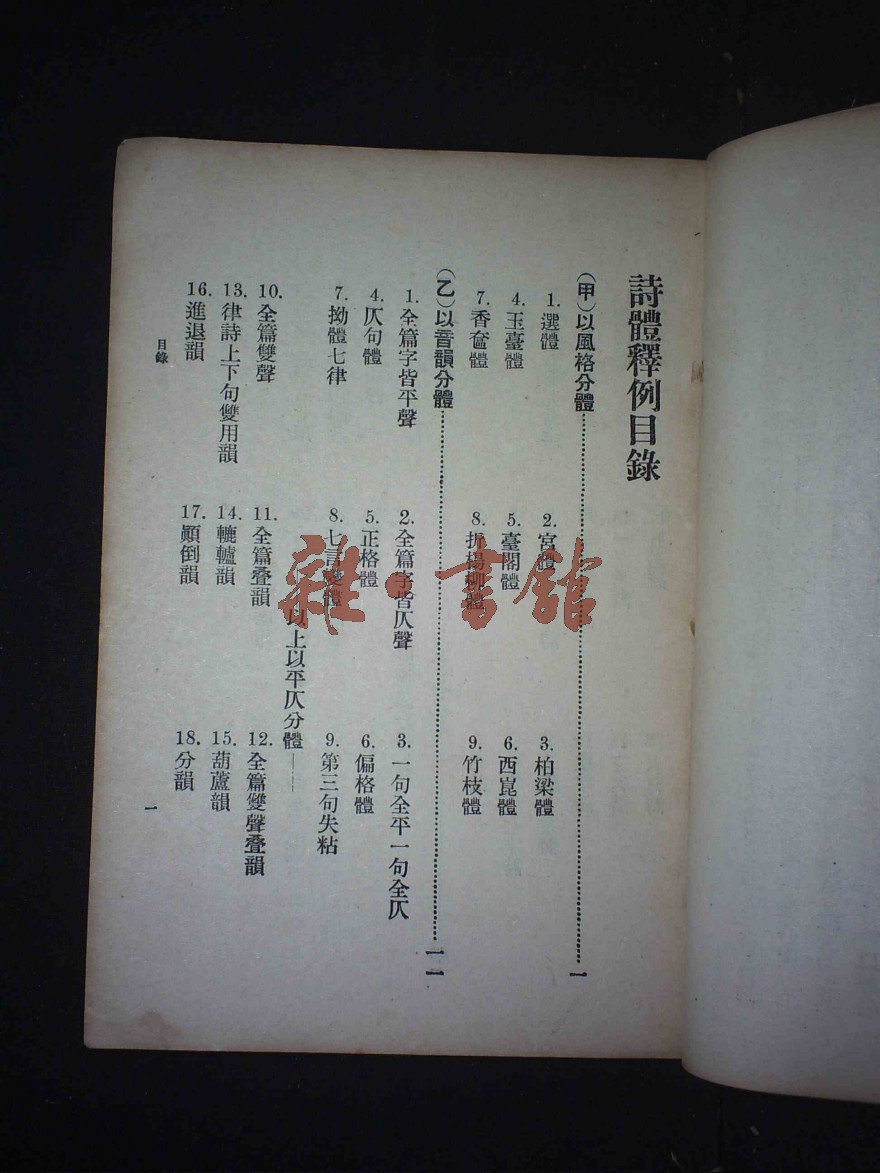 詩體釋例目錄
(甲)以風格分體……………………一
1. 選體 2. 宮體 3. 柏梁體
4. 玉臺體 5. 臺閣體 6. 西崑體
7. 香奩體 8. 折楊柳體 9. 竹枝體
(乙)以音韻分體……………………一一
1. 全篇字皆平聲 2. 全篇字皆仄聲 3. 一句全平一句全仄
4. 仄句體 5. 正格體 6. 偏格體
7. 拗體七律 8. 七言變體 9. 第三句失粘
以上以平仄分體———
10. 全篇雙聲 11. 全篇叠韻 12. 全篇雙聲叠韻
13. 律詩上下句雙用韻 14. 轆轤韻 15. 葫蘆韻
16. 進退韻 17. 顚倒韻 18. 分韻
目錄
一
雜·書館